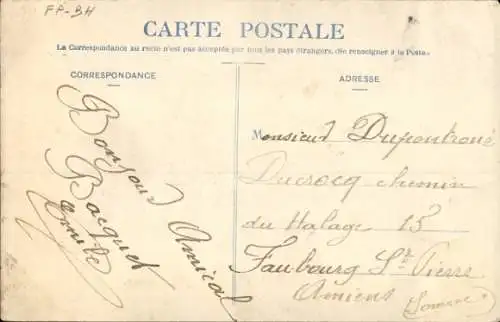 FP-BH
CARTE POSTALE
La Correspondance au recto n'est pas acceptée par tous les pays étrangers, (Se renseigner à la Poste).
CORRESPONDANCE
ADRESSE
Bonjour Amical
Bacquet
Monsieur
Ducrocq chemin
du Halage 15
Faubourg St Pierre
Amiens (Somme)